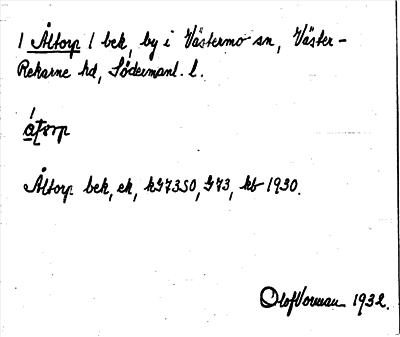 1 Åltorp / bek, by i Västermo sn, Väster-
Rekarne hd, Södermanl. l.
åltorp
Åltorp bek, ek, kG7350, G73, kb 1930.
Olof Norman 1932.